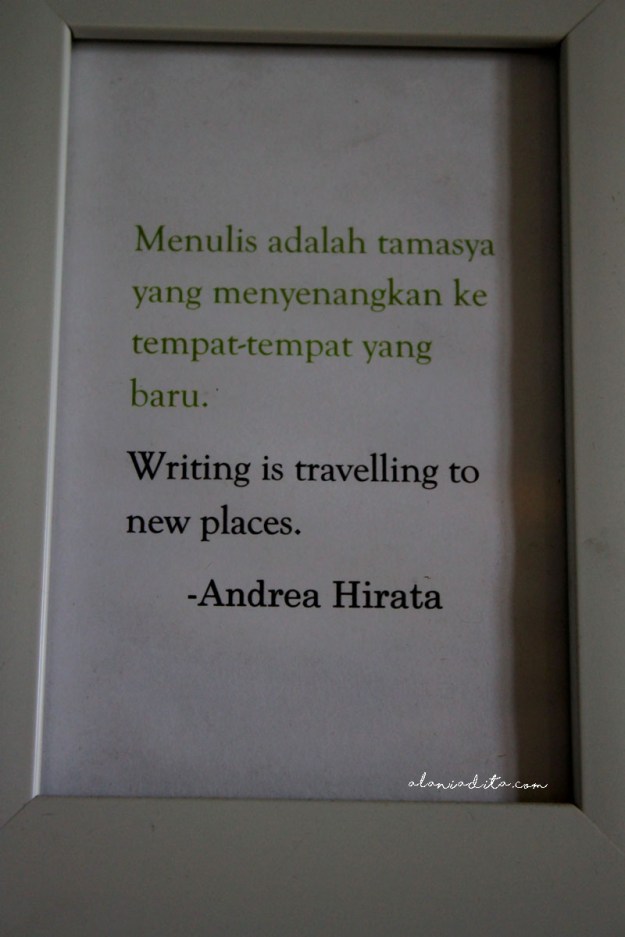 Menulis adalah tamasya
yang menyenangkan ke
tempat-tempat yang
baru.
Writing is travelling to
new places.
-Andrea Hirata
alaniadita.com